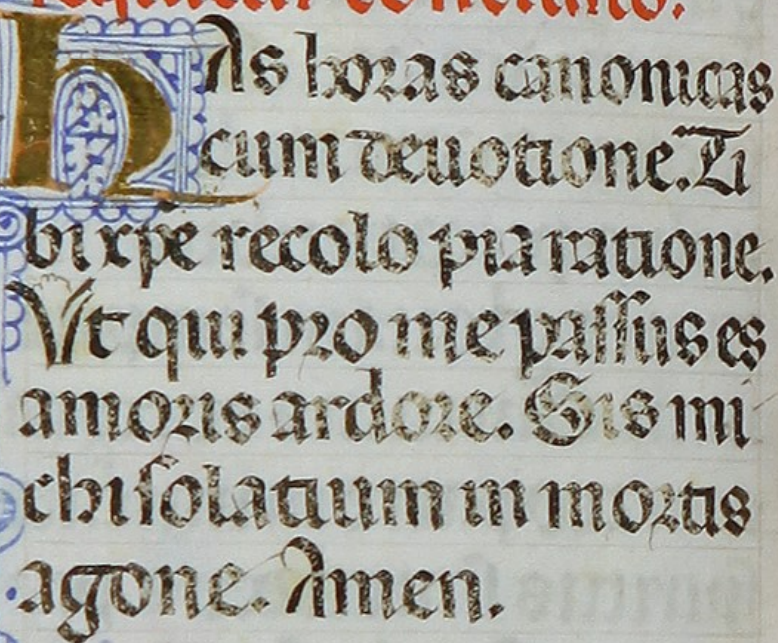 HAs horas canonicas
cum deuotione. Ti
bi xpe recolo pia ratione.
Vt qui pro me passus es
amoris ardore. Sis mi
chi solatium in mortis
agone. Amen.